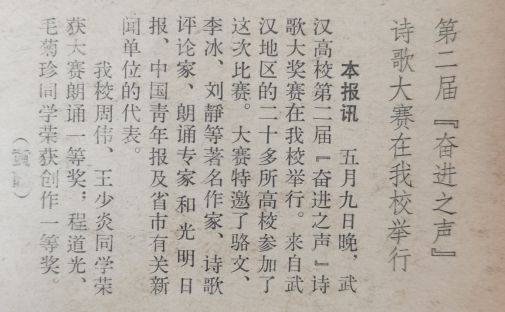 第二届『奋进之声』
诗歌大赛在我校举行
本报讯　五月九日晚，武
汉高校第二届『奋进之声』诗
歌大奖赛在我校举行。来自武
汉地区的二十多所高校参加了
这次比赛。大赛特邀了骆文、
李冰、刘静等著名作家、诗歌
评论家、朗诵专家和光明日
报、中国青年报及省市有关新
闻单位的代表。
我校周伟、王少炎同学荣
获大赛朗诵一等奖；程道光、
毛菊珍同学荣获创作一等奖。